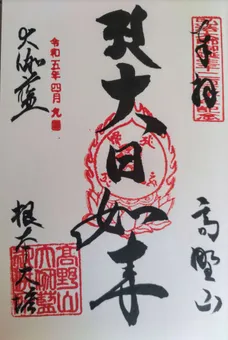 奉拝
高野山
大日如来
令和五年四月九日
大伽藍
根本大塔
高野山
大伽藍